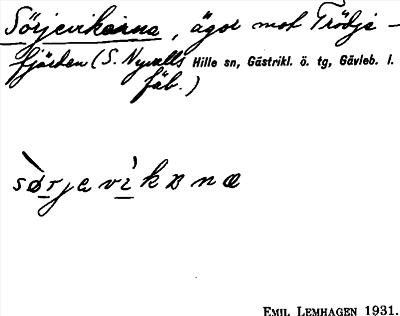 Sörjevikarna, ägor mot Trödje-
fjärden (S. Nyvalls Hille sn, Gästrikl. ö. tg, Gävleb. l.
fäb.)
sørjevikana
EMIL LEMHAGEN 1931.